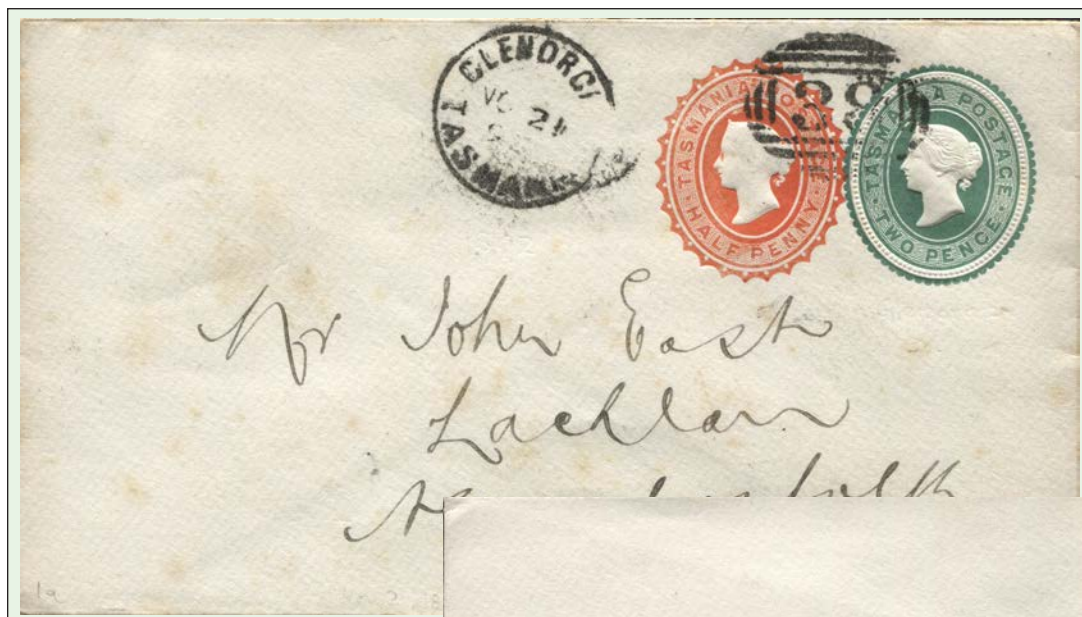 GLENORC
NO 21
TASMAN
TASMANIA POSTAGE
HALF PENNY
TASMANIA POSTAGE
TWO PENCE
Mr John East
Lachlan
1a